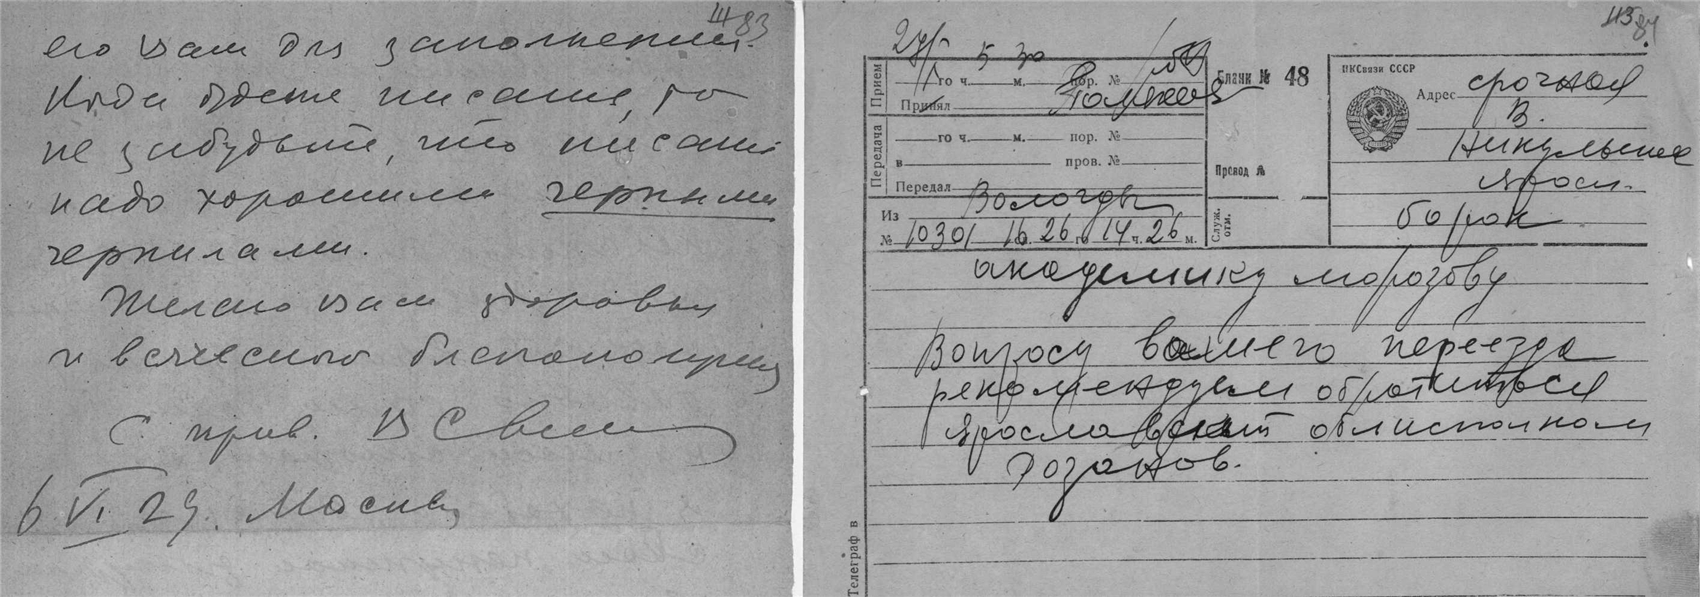 83
его вам для заполнения.
Когда будете писать, то
не забудьте, что писать
надо хорошими черными
чернилами.
Желаю вам здоровья
и всяческого благополучия
С прив.
6 VI 29. Москва
27/V 5 30
Прием
го ч. м. пор. №
Принял
Передача
го ч. м. пор. №
в пров. №
Передал
Из Вологды
№ 10301 16 26 го 14 ч. 26 м.
Бланк № 48
Провод №
Служ. отм.
НКСвязи СССР
Адрес срочная
В.
Никульское
яросл.
борок
академику морозову
Вопросу вашего переезда
рекомендуем обратиться
Ярославский облисполком
Розанов.
Телеграф в